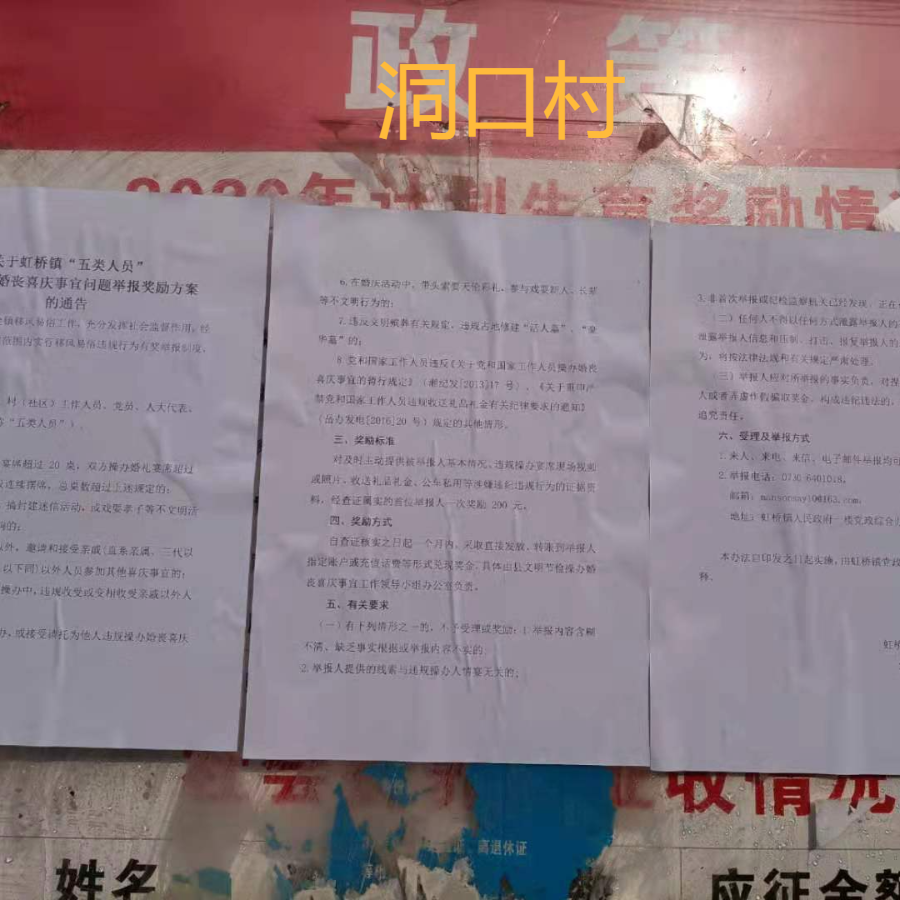 政策
洞口村
2020年计划生育奖励情况
关于虹桥镇“五类人员”
婚丧喜庆事宜问题举报奖励方案
的通告
镇移风易俗工作,充分发挥社会监督作用,经
范围内实行移风易俗违规行为有奖举报制度,
村(社区)工作人员、党员、人大代表、
“五类人员”)。
宴席超过 20 桌,双方操办婚礼宴席超过
连续摆席,总桌数超过上述规定的;
搞封建迷信活动,或戏耍孝子等不文明活
的;
以外,邀请和接受亲戚(直系亲属、三代以
以下同)以外人员参加其他喜庆事宜的;
操办中,违规收受或变相收受亲戚以外人
办,或接受请托为他人违反操办婚丧喜庆
6.在婚庆活动中,带头索要天价彩礼、参与戏耍新人、长辈
等不文明行为的;
7.违反文明殡葬有关规定,违规占地修建“活人墓”、“豪
华墓”的;
8.党和国家工作人员违反《关于党和国家工作人员操办婚丧
喜庆事宜的暂行规定》(湘纪发[2013]17 号)、《关于重申严
禁党和国家工作人员违规收送礼品礼金有关纪律要求的通知》
(岳办发电[2016]20 号)规定的其他情形。
三、奖励标准
对及时主动提供被举报人基本情况、违规操办宴席现场视频
或照片、收送礼品礼金、公车私用等涉嫌违纪违规行为的证据资
料,经查证属实的首位举报人一次奖励 200 元。
四、奖励方式
自查证核实之日起一个月内,采取直接发放、转账到举报人
指定账户或充值话费等形式兑现奖金,具体由县文明节俭操办婚
丧喜庆事宜工作领导小组办公室负责。
五、有关要求
(一)有下列情形之一的,不予受理或奖励:1.举报内容含糊
不清、缺乏事实根据或举报内容不实的;
2.举报人提供的线索与违规操办人情宴无关的;
3.非首次举报或纪检监察机关已经发现、正在
(二)任何人不得以任何方式泄露举报人的
泄露举报人信息和压制、打击、报复举报人的
为,将按法律法规和有关规定严肃处理。
(三)举报人应对所举报的事实负责,对捏
人或者弄虚作假骗取奖金,构成违纪违法的,
追究责任。
六、受理及举报方式
1.来人、来电、来信、电子邮件举报均可
2.举报电话:0730-6401018,
地址:虹桥镇人民政府一楼党政综合办
本办法自印发之日起实施,由虹桥镇党政
释。
虹桥
收情况
离退休证
姓名
应征金额